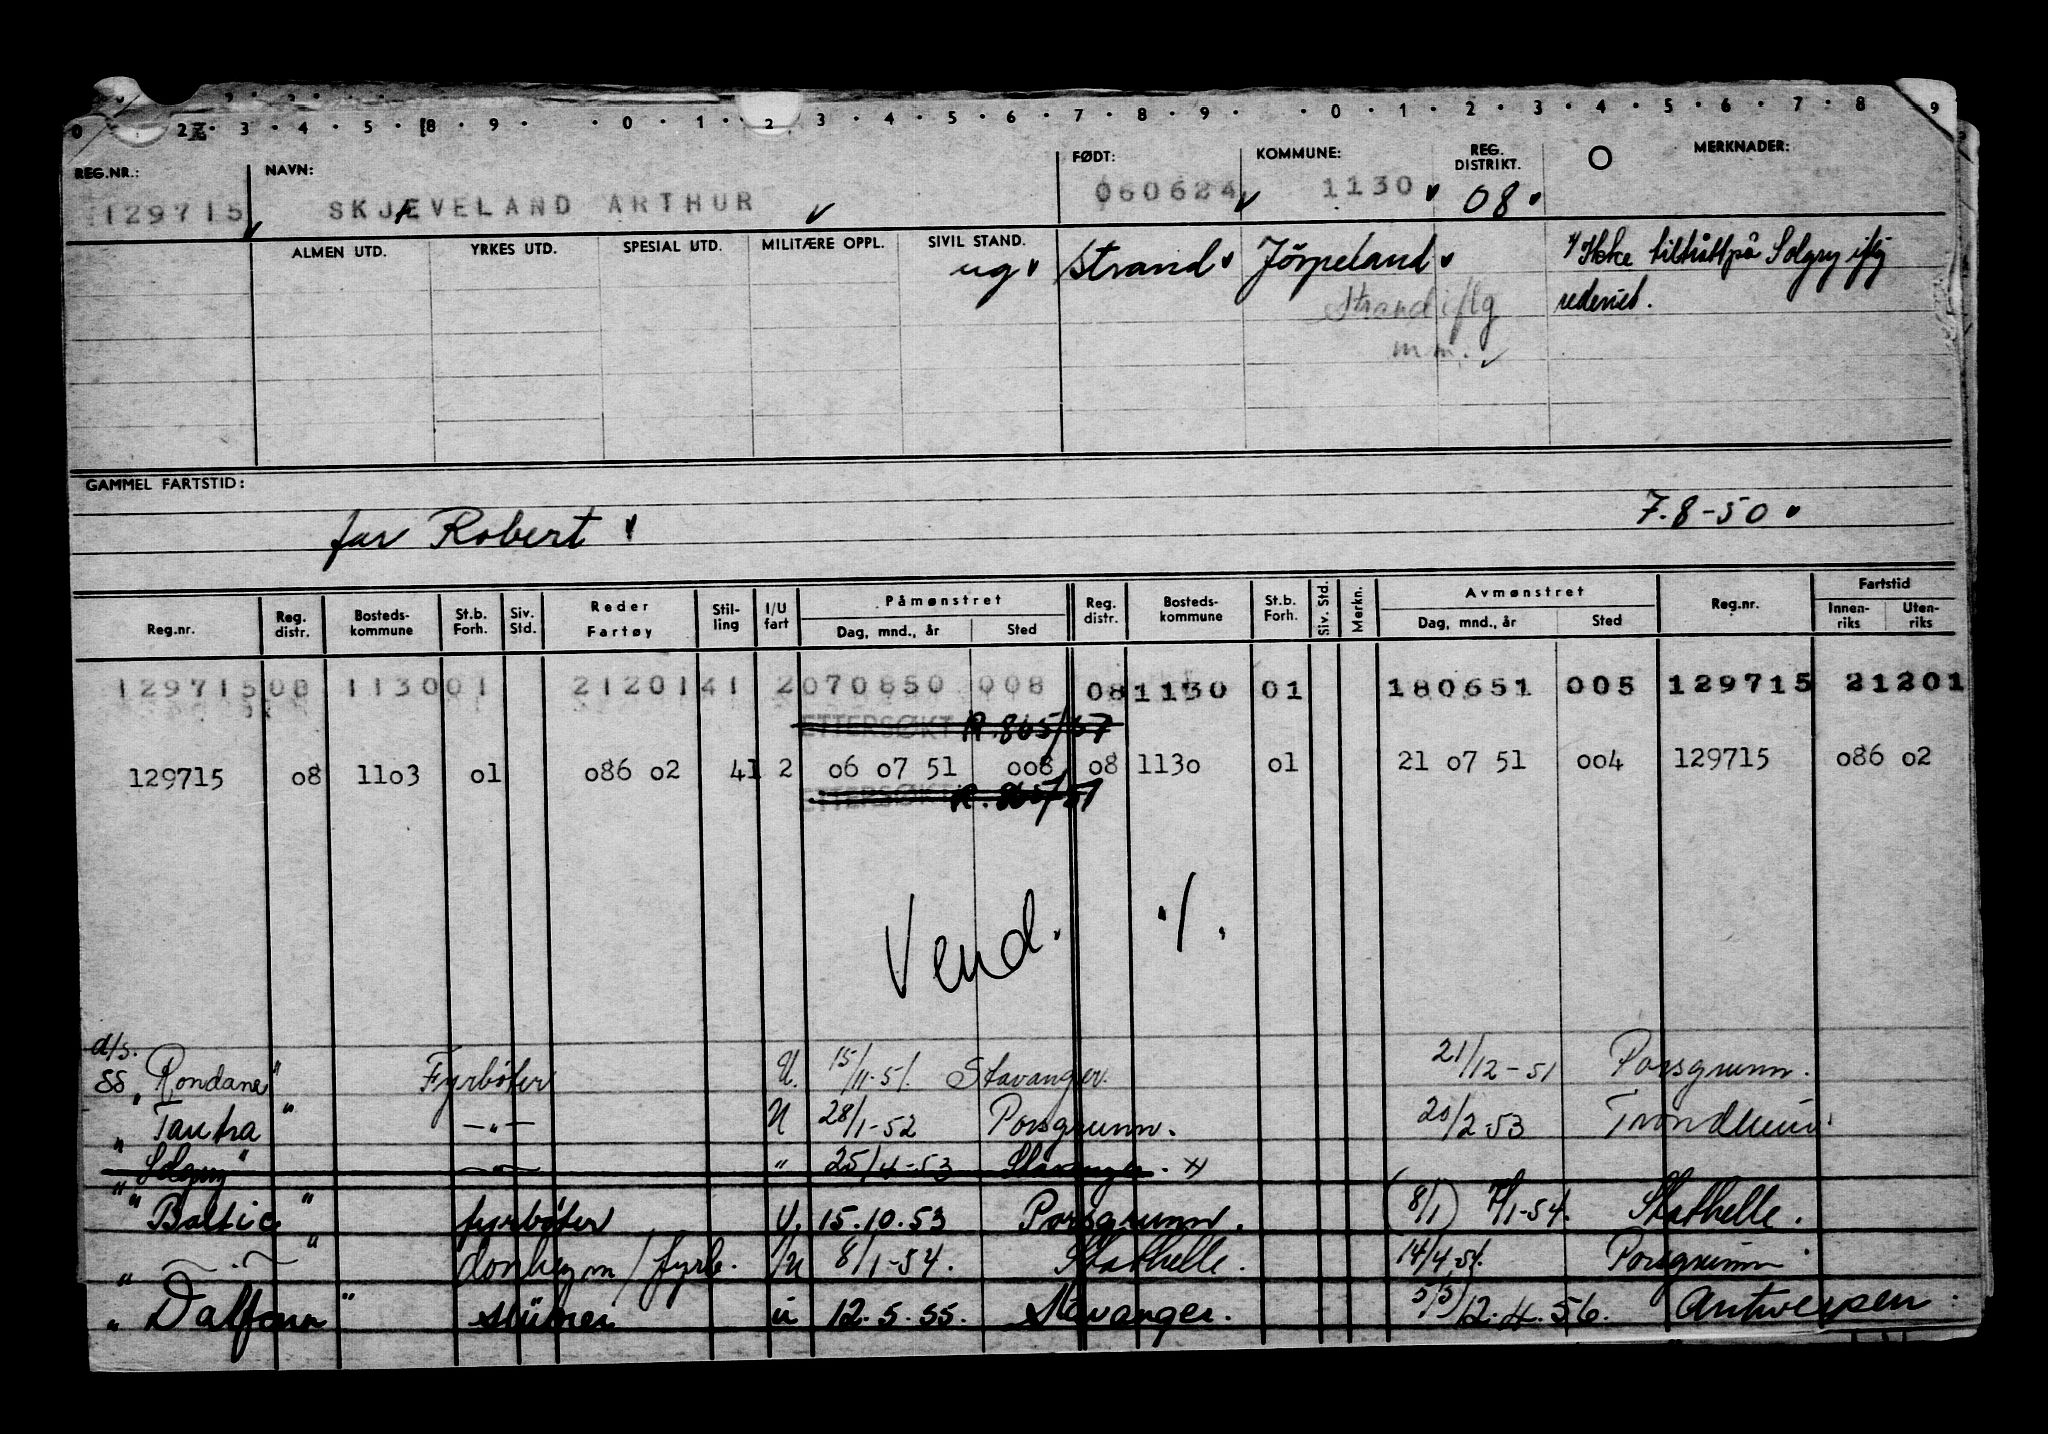 0 2 3 4 5 8 9 0 1 2 3 4 5 6 7 8 9 0 1 2 3 4 5 6 7 8 9
REG.NR.: NAVN: FØDT: KOMMUNE: REG. DISTRIKT. MERKNADER:
129715 SKJÆVELAND ARTHUR 060624 1130 08
ALMEN UTD. YRKES UTD. SPESIAL UTD. MILITÆRE OPPL. SIVIL STAND.
ug Strand Jörpeland Ikke tiltrått på Solgry iflg
Strand iflg rederiet.
m.m.
GAMMEL FARTSTID:
far Robert 7.8-50
Reg.nr. Reg. distr. Bosteds-kommune St.b. Forh. Siv. Std. Reder Fartøy Stil-ling I/U fart Påmønstret Dag, mnd., år Sted Reg. distr. Bosteds-kommune St.b. Forh. Siv. Std. Merkn. Avmønstret Dag, mnd., år Sted Reg.nr. Fartstid Innen-riks Uten-riks
129715 08 1130 01 21201 41 2 070850 008 08 1130 01 180651 005 129715 21201
ETTERSØKT
129715 08 1103 01 086 02 41 2 06 07 51 008 08 1130 01 21 07 51 004 129715 086 02
ETTERSØKT
Vend. ./.
d/s.
SS "Rondane" Fyrbøter U. 15/11-51. Stavanger. 21/12-51 Porsgrunn.
" Tautra " -"- U 28/1-52 Porsgrunn. 20/2-53 Trondheim
" Solgry" -"- " 25/4-53 Stavanger. x)
" "Baltic" fyrbøter U. 15.10.53 Porsgrunn. (8/1) 7/1-54. Stathelle.
" -"- donkeym/fyrb. U 8/1-54. Stathelle. 14/4.54. Porsgrunn
" Dalfonn " stürer u 12.5.55. Stavanger. 5/5) 12.4.56. Antwerpen.